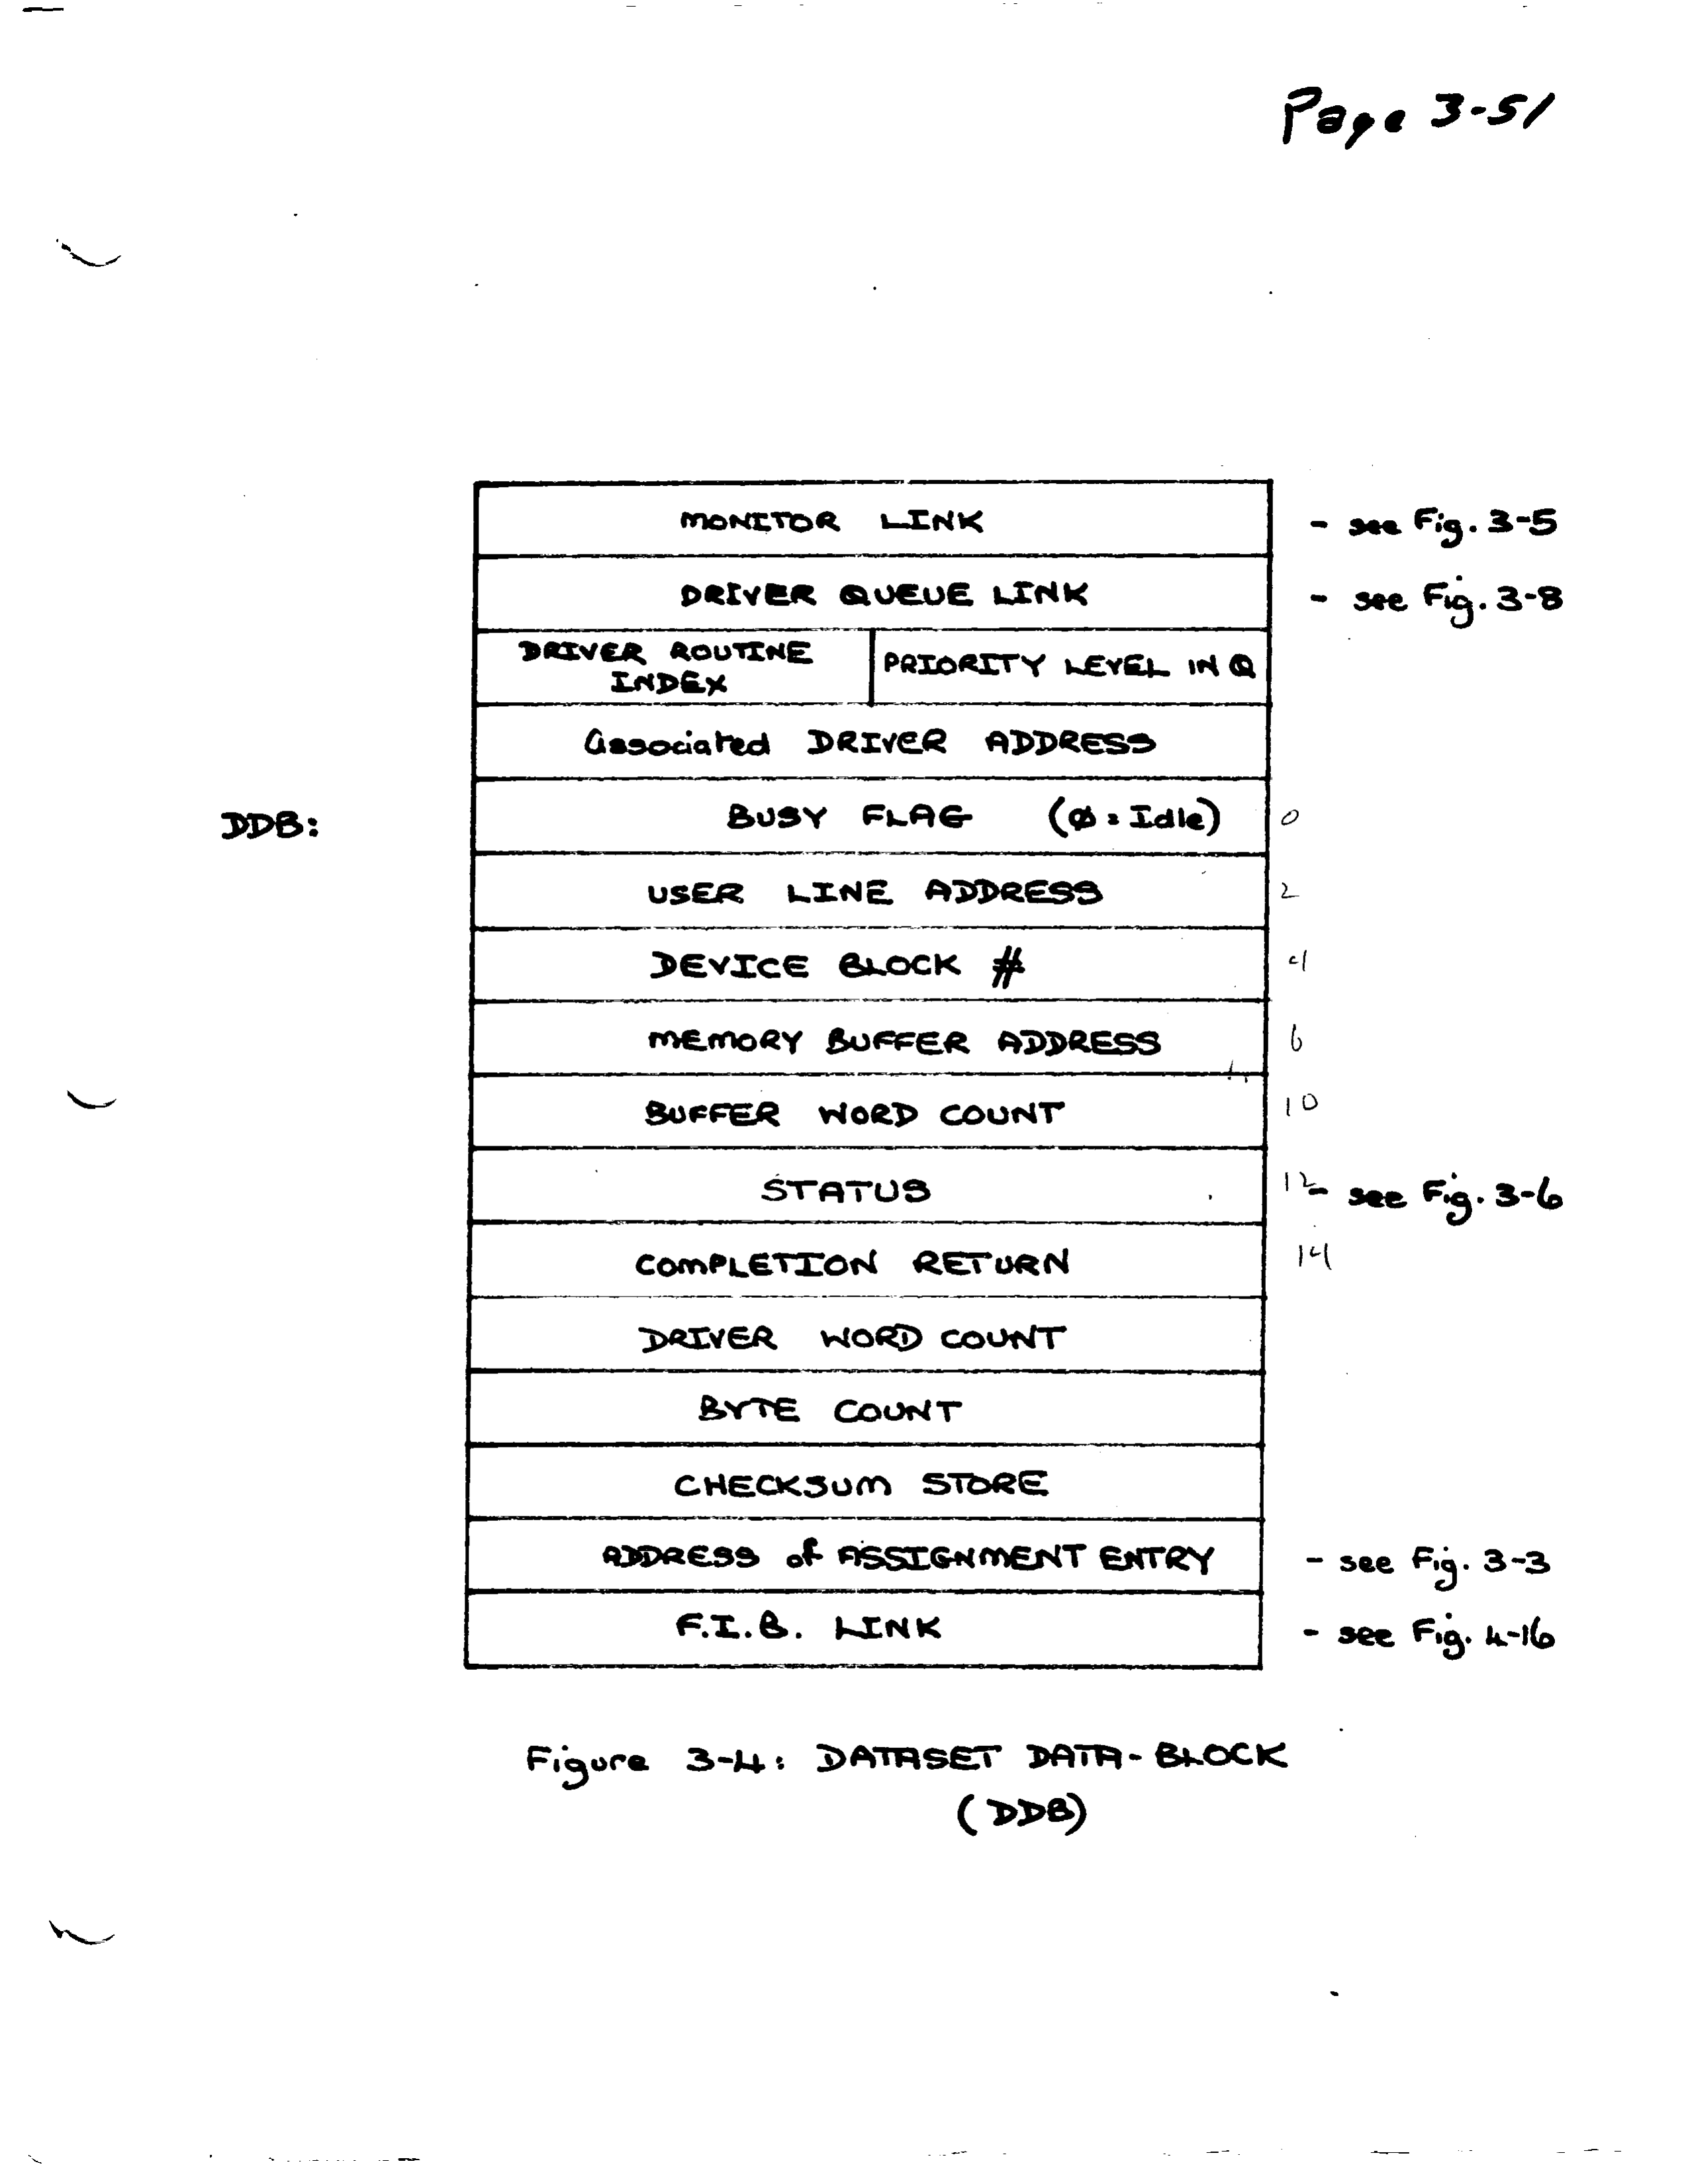 Page 3-51
MONITOR LINK - see Fig. 3-5
DRIVER QUEUE LINK - see Fig. 3-8
DRIVER ROUTINE INDEX
PRIORITY LEVEL IN Q
Associated DRIVER ADDRESS
DDB: BUSY FLAG (Ø = Idle) 0
USER LINE ADDRESS 2
DEVICE BLOCK # 4
MEMORY BUFFER ADDRESS 6
BUFFER WORD COUNT 10
STATUS 12 - see Fig. 3-6
COMPLETION RETURN 14
DRIVER WORD COUNT
BYTE COUNT
CHECKSUM STORE
ADDRESS of ASSIGNMENT ENTRY - see Fig. 3-3
F.I.B. LINK - see Fig. 4-16
Figure 3-4: DATASET DATA-BLOCK
(DDB)